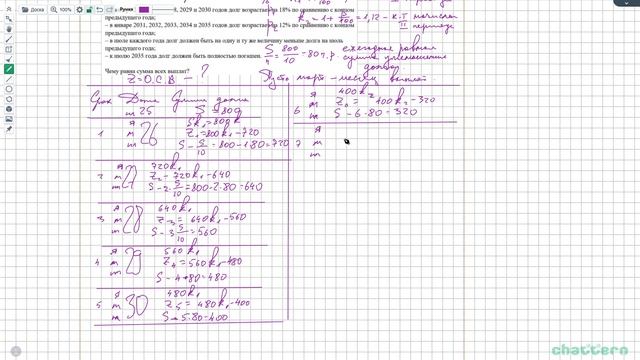 Доска
Ручка
8, 2029 и 2030 годов долг возрастает на 18% по сравнению с концом
предыдущего года;
– в январе 2031, 2032, 2033, 2034 и 2035 годов долг возрастает на 12% по сравнению с концом
предыдущего года;
– в июле каждого года долг должен быть на одну и ту же величину меньше долга на июль
предыдущего года;
– к июлю 2035 года долг должен быть полностью погашен.
Чему равна сумма всех выплат?
Z = О.С.В. — ?
= 1,12 – к.т начислен.
II периода
S/n = 800/10 = 80 т.р.
ежегодная равная
сумма уменьшения
долга
Пусть март – месяц выплат
Срок Дата Сумма долга
т 25 S = 800
1 я м т 26
Sk₁ = 800k₁
Z₁ = 800k₁ – 720
S – S/10 = 800 – 1·80 = 720
2 я м т 27
720k₁
Z₂ = 720k₁ – 640
S – 2·S/10 = 800 – 2·80 = 640
3 я м т 28
640k₁
Z₃ = 640k₁ – 560
S – 3·S/10 = 560
4 я м т 29
560k₁
Z₄ = 560k₁ – 480
S – 4·80 = 480
5 я м т 30
480k₁
Z₅ = 480k₁ – 400
S – 5·80 = 400
6 я м т
400k₂
Z₆ = 400k₂ – 320
S – 6·80 = 320
7 я м т
chattern